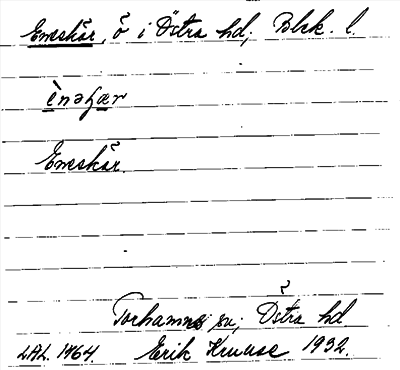 Eneskär, ö i Östra hd; Blek. l.
Eneskär.
Torhamns sn; Östra hd
LAL. 1464. Erik Kruuse 1932.